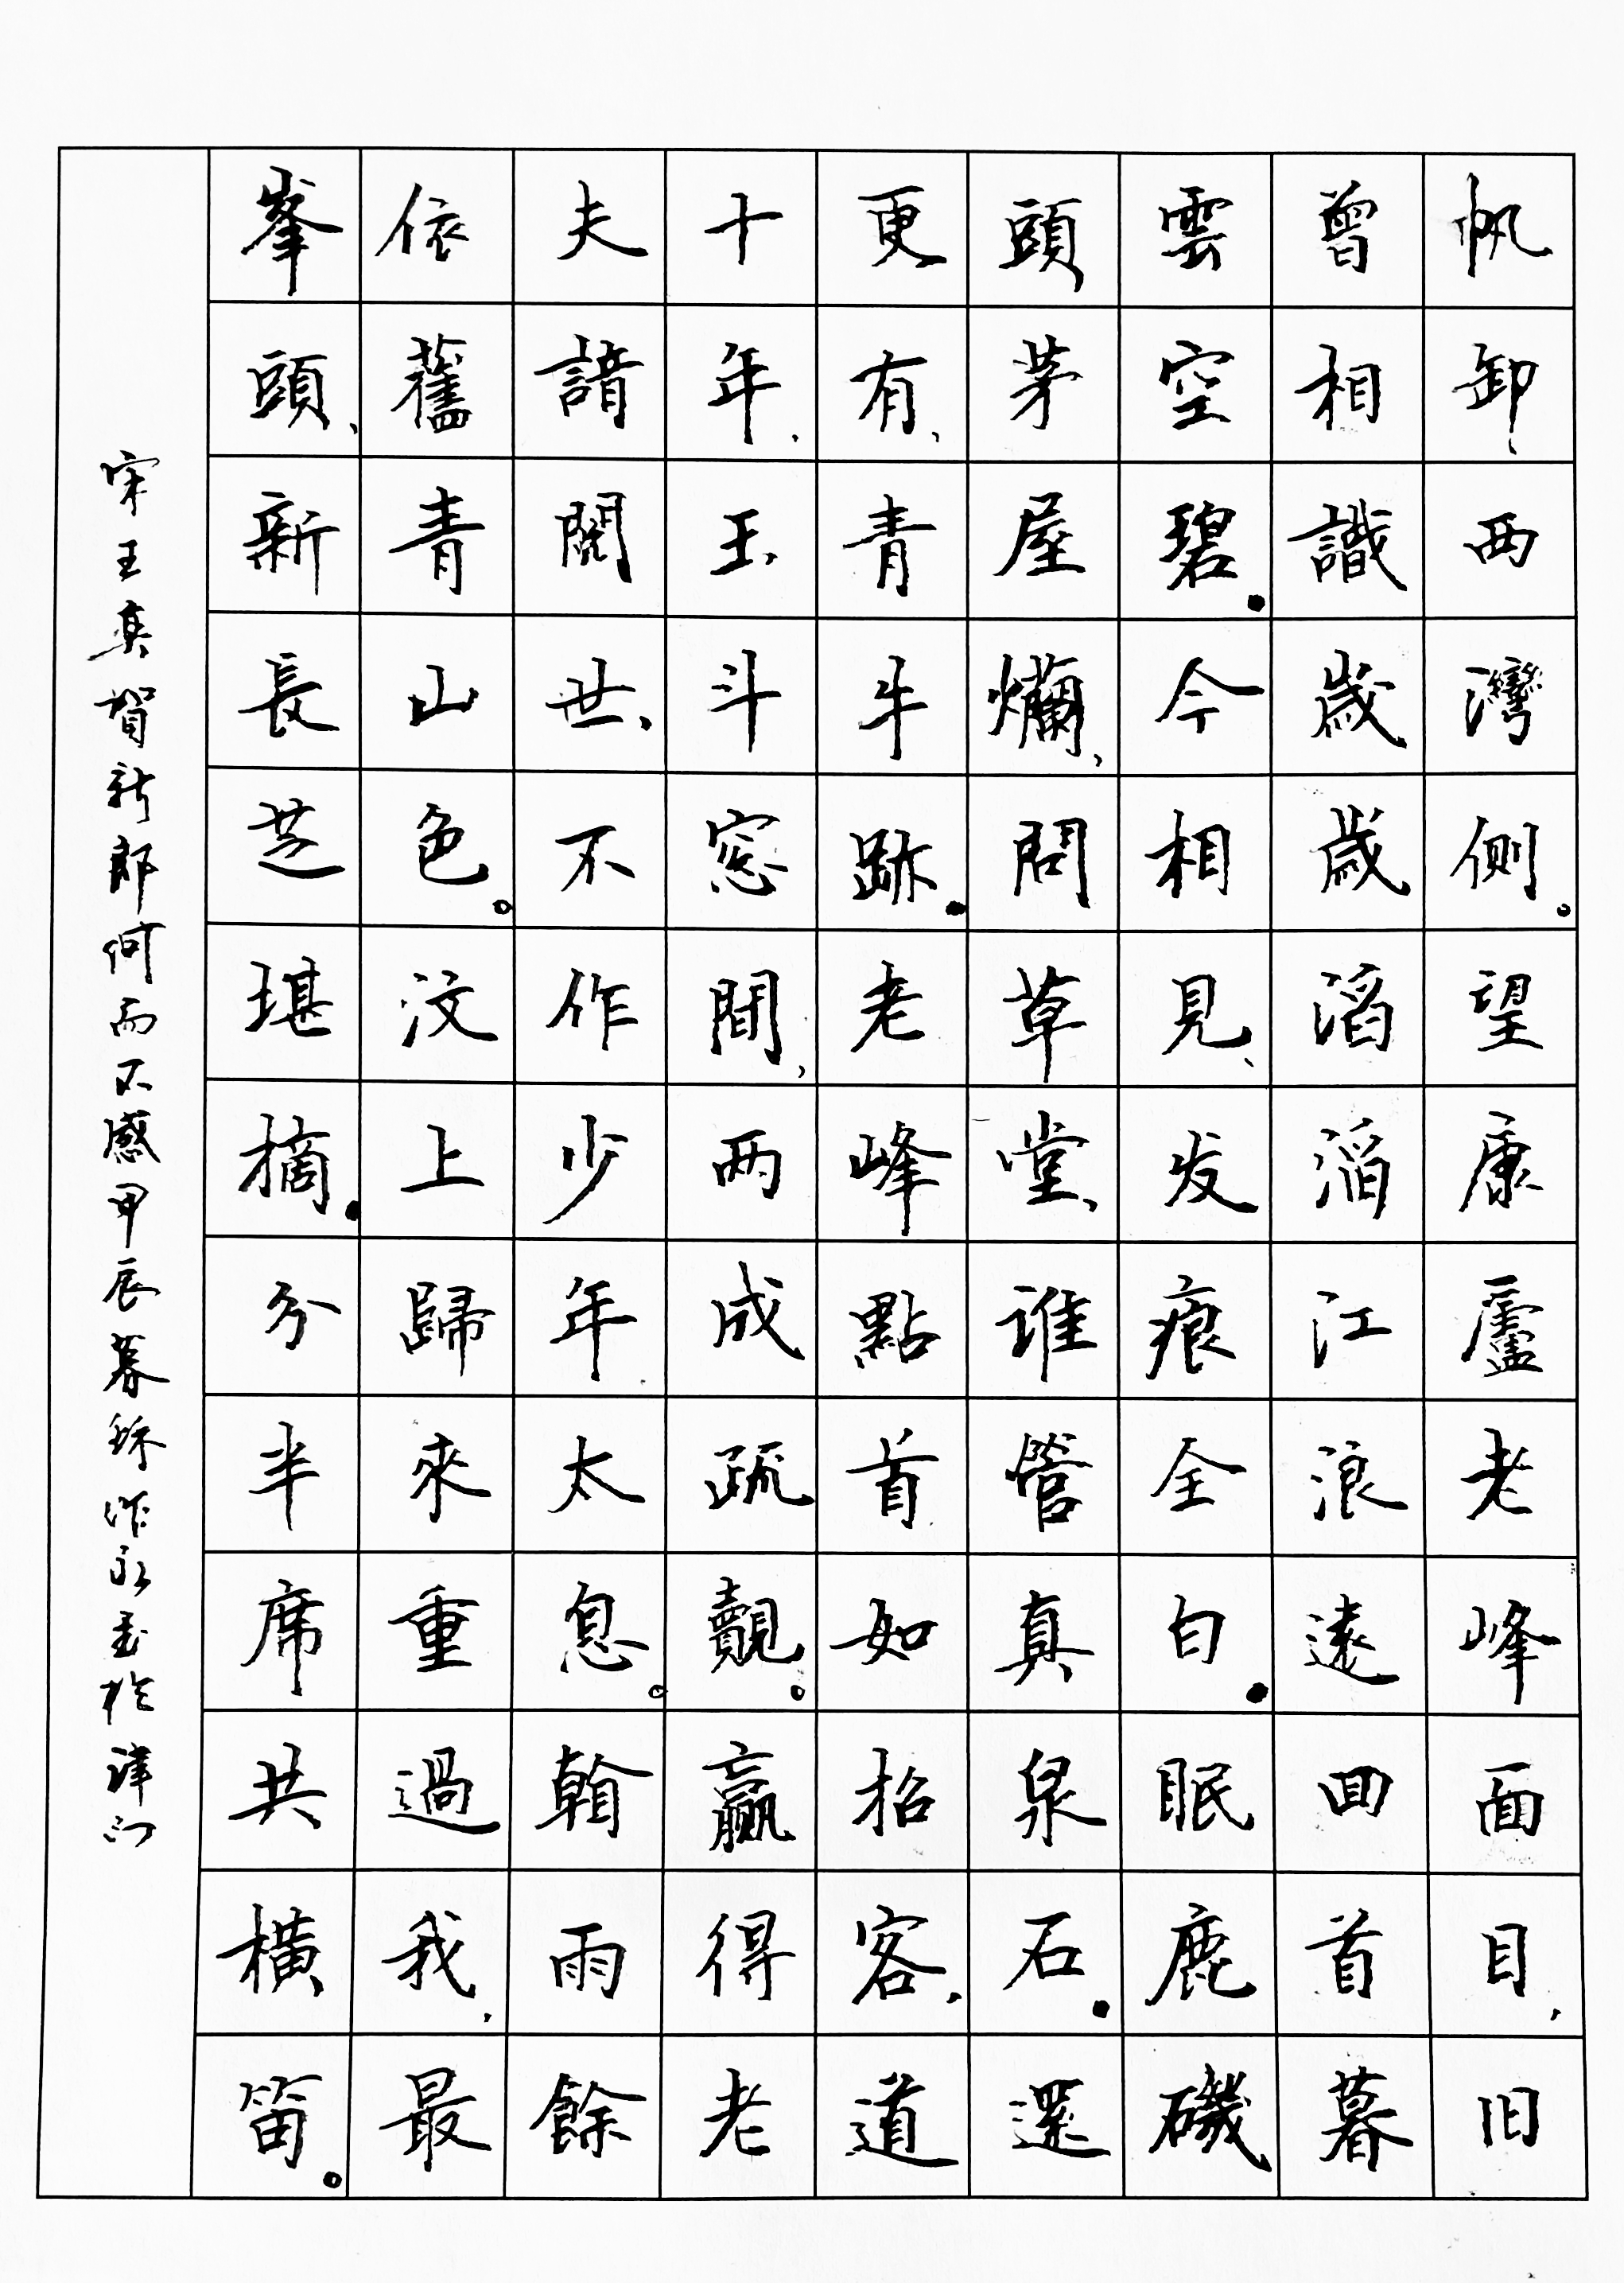 帆卸、西灣側。望康廬老峰面目，旧
曾相識歲歲滔滔江浪遠回首暮
雲空碧。今相見、发痕全白。眠鹿磯
頭茅屋爛，問草堂、谁管真泉石。還
更有，青牛跡。老峰點首如招客，道
十年，玉斗窓間，两成疏觀。贏得老
夫諳閱世、不作少年太息。翰雨餘
依舊青山色。汶上歸來重過我，最
峯頭、新長芝堪摘。分半席共橫笛。
宋王奕賀新郎何而不感甲辰暮秌作永 於津门